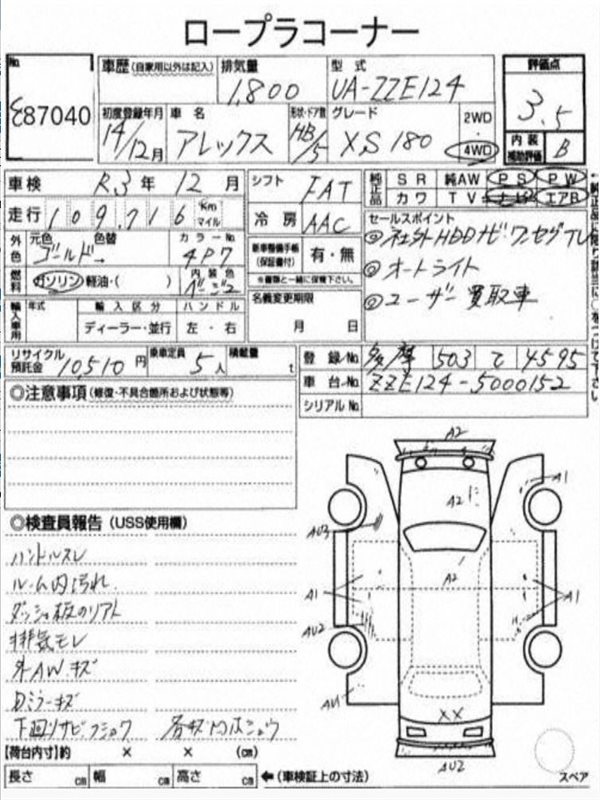 ロープラコーナー
No. 687040
車歴 (自家用以外は記入) 排気量 1,800 型式 UA-ZZE124 評価点 3.5
初度登録年月 14/12月 車名 アレックス 形状・ドア数 HB/5 グレード XS180 2WD・4WD 内装補助評価 B
車検 R.3年 12月 シフト FAT 純正品 SR 純AW PS PW
カワ TV ナビ エアB
走行 109,716 Km マイル 冷房 AAC セールスポイント
外色 元色 ゴールド 色替 カラーNo. 4P7 新車整備手帳(保証書付) 有・無 ①社外HDDナビ・ワンセグTV
燃料 ガソリン 軽油・( ) 内装色 ベージュ ※書類と一緒に保管下さい。 ②オートライト
名義変更期限 月 日 ③ユーザー買取車
輸入車用 年式 輸入区分 ハンドル
ディーラー・並行 左・右
リサイクル預託金 10,510円 乗車定員 5人 積載量 t 登録No. 多摩 503 て 4595
車台No. ZZE124-5000152
シリアルNo.
◎注意事項(修復・不具合箇所および状態等)
◎検査員報告 (USS使用欄)
ハンドルスレ
ルーム内汚れ
ダッシュ板のリアト
排気モレ
外AW.キズ
Dミラーキズ
下回りサビ・フショク 各キズ・凹ホシュウ
【荷台内寸】約 × × (cm)
長さ cm 幅 cm 高さ cm ←(車検証上の寸法)
A2
A1
A2
AU3
A2
A1
A1
AU2
AU1
XX
AU2
スペア